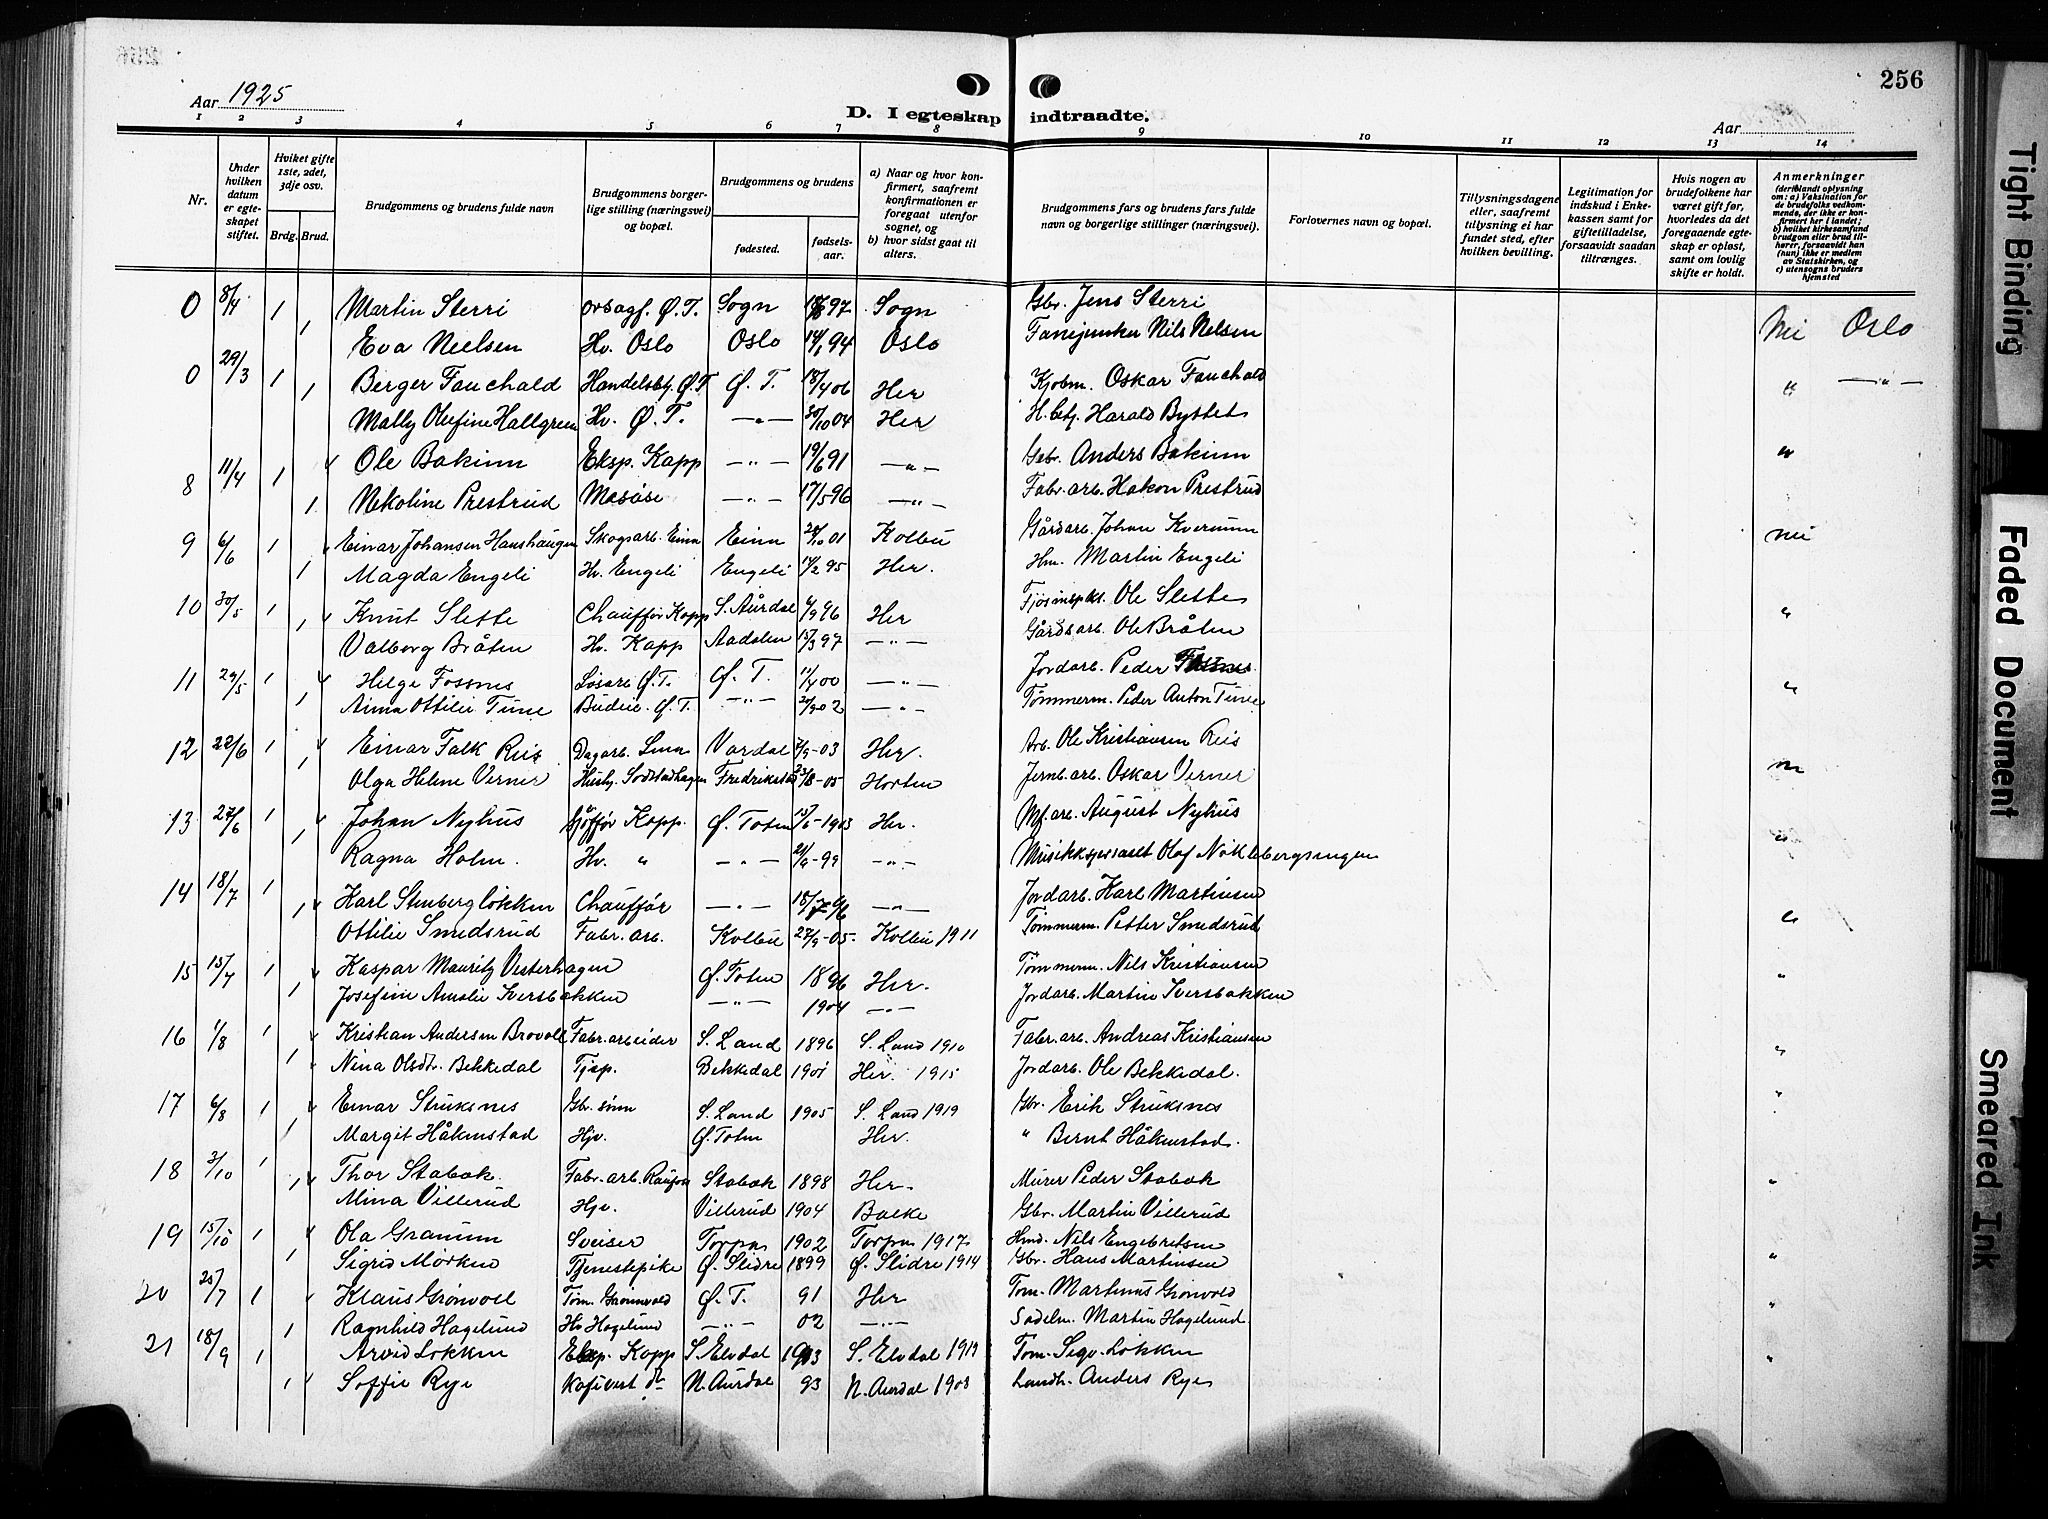 256
Aar 1925
D. I egteskap indtraadte.
Aar
1 2 3 4 5 6 7 8 9 10 11 12 13 14
Nr.
Under hvilken datum er egteskapet stiftet.
Hviket gifte 1ste, 2det, 3dje osv.
Brdg. Brud.
Brudgommens og brudens fulde navn
Brudgommens borgerlige stilling (næringsvei) og bopæl.
Brudgommens og brudens
fødested. fødselsaar.
a) Naar og hvor konfirmert, saafremt konfirmationen er foregaat utenfor sognet, og b) hvor sidst gaat til alters.
Brudgommens fars og brudens fars fulde navn og borgerlige stillinger (næringsvei).
Forlovernes navn og bopæl.
Tillysningsdagene eller, saafremt tillysning ei har fundet sted, efter hvilken bevilling.
Legitimation for indskud i Enkekassen samt for giftetilladelse, forsaavidt saadan tiltrænges.
Hvis nogen av brudefolkene har været gift før, hvorledes da det foregaaende egteskap er opløst, samt om lovlig skifte er holdt.
Anmerkninger (deriblandt oplysning om: a) Vaksination for de brudefolks vedkommende, der ikke er konfirmert her i landet; b) hvilket kirkesamfund brudgom eller brud tilhører, forsaavidt han (hun) ikke er medlem av Statskirken, og c) utensogns bruders hjemsted
0 8/4 1 Martin Sterri Ø.T. Sogn 97 Sogn Gbr. Jens Sterri
1 Eva Nielsen Hv. Oslo Oslo 14/1 94 Oslo Fanejunker Nils Nelsen Oslo
0 29/3 1 Berger Fauchald Handelsbtj. Ø.T. Ø.T. 18/4 06 Her Kjøbm. Oskar Fauchald " —"—
1 Mally Olufine Hallgren Hv. Ø.T. —"— 30/10 04 Her H.btj. Harald Bystet
8 11/4 1 Ole Bakinn Eksp. Kapp —"— 19/6 91 —"— Gbr. Anders Bakinn "
1 Nekoline Prestrud —"— 17/5 96 —"— Fabr. arb. Hakon Prestrud
9 6/6 1 Einar Johansen Haushaugen Skogsarb. Eina Eina 01 Kolbu Gårdarb. Johan Kvernum
1 Magda Engeli Hv. Engeli Engeli 14/2 95 Her. Hm. Martin Engeli
10 30/5 1 Knut Slette Chauffør Kapp S. Aurdal 6/9 96 Her Ole Slette "
1 Valborg Bråten Hv. Kapp Aadalen 15/3 97 —"— Gårdsarb. Ole Bråten
11 29/5 1 Helge Fossnes Løsarb. Ø.T. Ø.T. 11/4 00 —"— Jordarb. Peder Fossnes "
1 Anna Ottilie Tune Budeie. Ø.T. —"— 02 —"— Tømmerm. Peder Anton Tune
12 22/6 1 Einar Falk Reis Dagarb. Vardal 03 Her. Arb. Ole Kristiansen Reis
1 Olga Helene Verner Husbj. Sodstadhagen Fredrikstad 23/8-05 Horten Jernb. arb. Oskar Verner
13 27/6 1 Johan Nyhus Sjøffør Kapp. Ø. Toten 1903 Her. Mf. arb. August Nyhus "
1 Ragna Holm. Hv. " —"— 99 —"— Olaf Nøklebergsengen
14 18/7 1 Karl Stenberg Løkken Chauffør —"— —"— Jordarb. Karl Martinsen
1 Ottilie Smedsrud Fabr. arb. Kolbu 27/9-05. Kolbu 1911 Tømmerm. Petter Smedsrud "
15 15/7 1 Kaspar Mauritz Vesterhagen Ø. Toten 1896 Her. Tømmerm. Nils Kristiansen "
1 Josefine Amalie Iversbakken —"— 1904 —"— Jordarb. Martin Iversbakken
16 1/8 1 Kristian Andersen Brovoll Fabr. arbeider S. Land 1896 S. Land 1910 Fabr. arb. Andreas Kristiansen "
1 Nina Olsdtr. Bekkedal Tjsp. Bekkedal 1901 Her. 1915 Jordarb. Ole Bekkedal.
17 6/8 1 Einar Struksnes Gbr. sønn S. Land 1905 S. Land 1919 Gbr. Erik Struksnes "
1 Margit Håkenstad Hjv. Ø. Toten Her. " Bernt Håkenstad.
18 3/10 1 Thor Stabak Fabr. arb. Raufoss Stabak 1898 Her. Murer Peder Stabak "
1 Mina Villerud Hjv. Villerud 1904 Balke Gbr. Martin Villerud
19 15/10 1 Ola Granum Sveiser Torpa 1902 Torpa 1917 Hmd. Nils Engebretsen
1 Sigrid Mørken Tjenestepike Ø. Slidre 1899 Ø. Slidre 1914 Gbr. Hans Martinsen "
20 1 Klaus Grønvoll Tøm. Grønnvold Ø.T. 91 Her Tøm. Martinus Grønvold "
1 Ragnhild Hagelund Hv Hagelund —"— 02 —"— Sadelm. Martin Hagelund.
21 18/9 1 Arvid Løkken Eksp. Kapp S. Elvdal 1903 S. Elvdal 1919 Tøm. Sigv. Løkken "
1 Soffie Rye N. Aurdal 93 N. Aurdal 1908 Landh. Anders Rye
Tight Binding
Faded Document
Smeared Ink